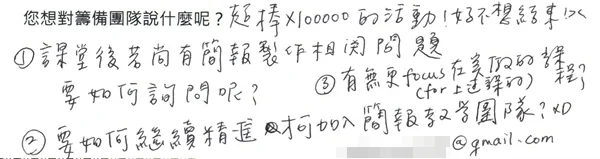 您想對籌備團隊說什麼呢？超棒x100000的活動！好不想結束ㄛㄑ
①課堂後若尚有簡報製作相関問題
要如何詢問呢？
③有無更focus在实做的課程？
(for上過課的)
②要如何繼續精進 才可加入簡報教学團隊？XD
@gmail.com